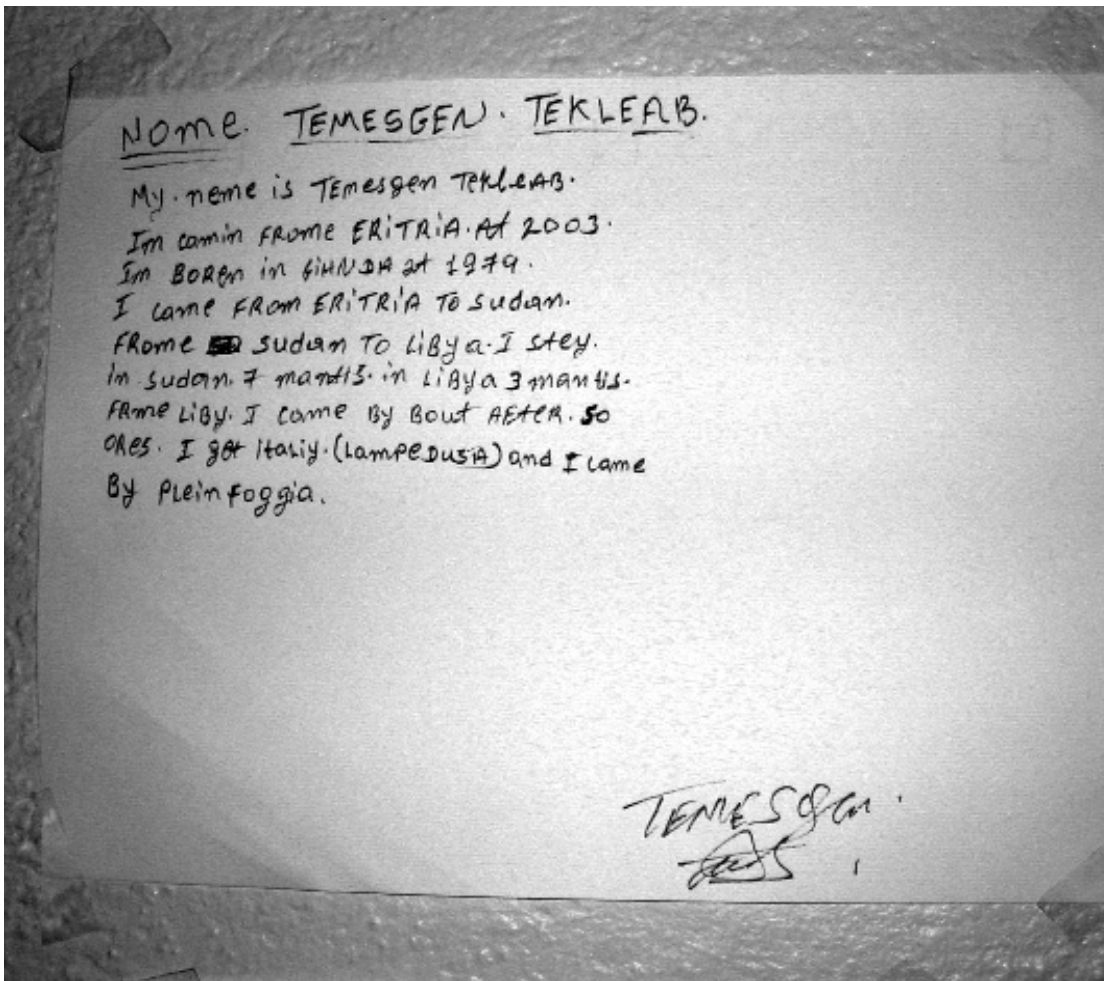 Nome. TEMESGEN. TEKLEAB.
My. neme is TEmesgen TekleAB.
Im camin FRome ERiTRiA. At 2003.
Im BOREn in GiHNDA at 1979.
I came FRom ERiTRiA To Sudan.
FRome sudan To LiBya. I stey.
in sudan. 7 mantis. in LiBya 3 mantis.
FRme LiBy. I came By Bout AFteR. 50
ORes. I get itaLiy. (LampeDUSiA) and I came
By PLein foggia.
TEMESgen.